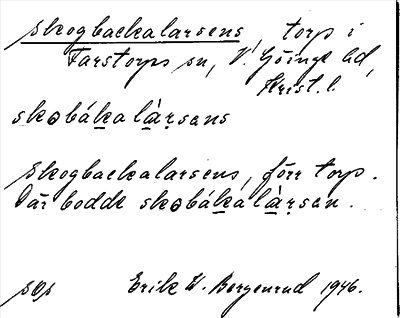 skogbackalarsens, torp i
Farstorps sn, V. Göinge hd,
Krist. l.
skọbák̲alà̲ṛsens
Skogbackalarsens, förr torp.
Där bodde skọbák̲alà̲ṛsen.
Erik W. Bergenrud 1946.